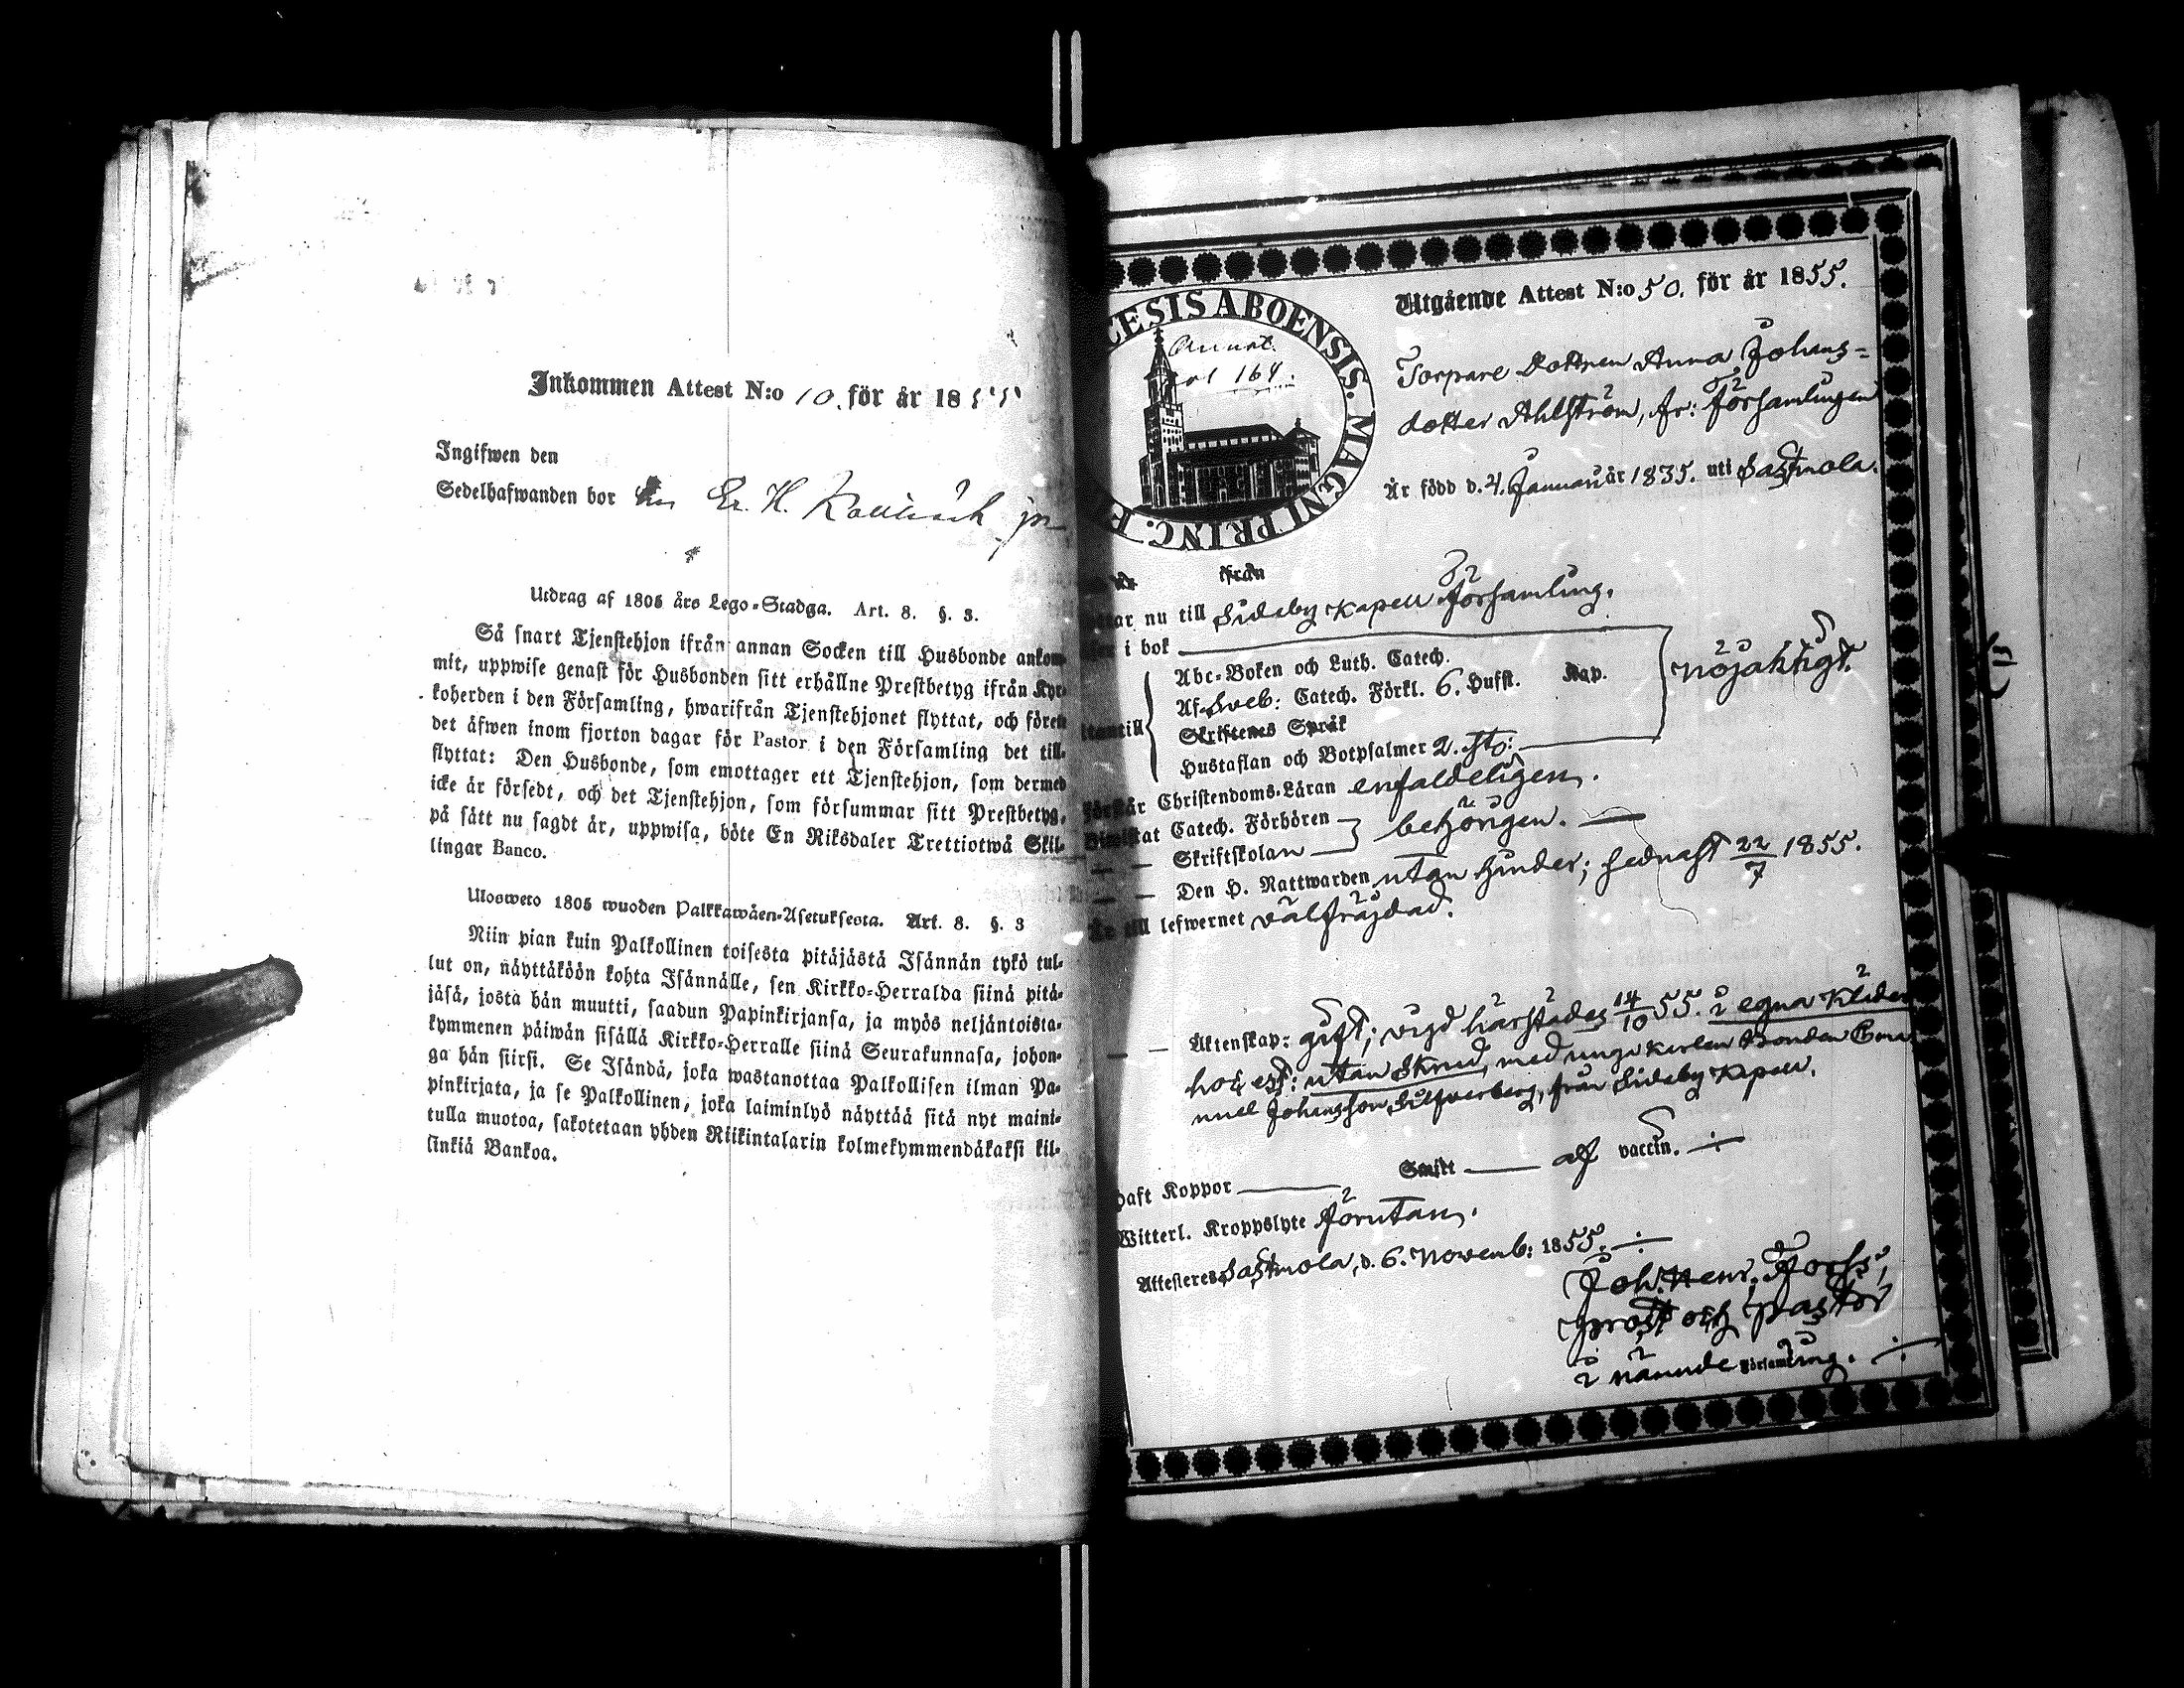 Inkommen Attest N:o 10. för år 1855
Ingifwen den
Sedelhafwanden bor Er. H.
Utdrag af 1805 års Lego-Stadga. Art. 8. §. 3.
Så snart Tjenstehjon ifrån annan Socken till Husbonde ankom-
mit, uppwise genast för Husbonden sitt erhållne Prestbetyg ifrån Kyr-
koherden i den Församling, hwarifrån Tjenstehjonet flyttat, och förete
det äfwen inom fjorton dagar för Pastor i den Församling det till-
flyttat: Den Husbonde, som emottager ett Tjenstehjon, som dermed
icke är försedt, och det Tjenstehjon, som försummar sitt Prestbetyg,
på sätt nu sagdt är, uppwisa, böte En Riksdaler Trettiotwå Skil-
lingar Banco.
Ulosweto 1805 wuoden Palkkawäen-Asetuksesta. Art. 8. §. 3
Niin pian kuin Palkollinen toisesta pitäjästä Isännän tykö tul-
lut on, näyttäköön kohta Isännälle, sen Kirkko-Herralda siinä pitä-
jäsä, josta hän muutti, saadun Papinkirjansa, ja myös neljäntoista-
kymmenen päiwän sisällä Kirkko-Herralle siinä Seurakunnasa, johon-
ga hän siirsi. Se Isändä, joka wastanottaa Palkollisen ilman Pa-
pinkirjata, ja se Palkollinen, joka laiminlyö näyttää sitä nyt maini-
tulla muotoa, sakotetaan yhden Riikintalarin kolmekymmendäkaksi kil-
linkiä Bankoa.
CESIS ABOENSIS. MAGNI PRINC. F
Annot.
fol 164.
Utgående Attest N:o 50. för år 1855.
Torpare dottren Anna Johans=
dotter Ahlström, fr: Församlingen
Är född d. 4. Januari år 1835. uti Sastmola.
ifrån
nu till Sideby Kapell Församling.
i bok
Abc-Boken och Luth. Catech.
Af Sveb: Catech. Förkl. 6. Hufst. Kap.
Skriftenes Språk
Hustaflan och Botpsalmer 2. st:
nöjaktigt.
utantill
Förstår Christendoms-Läran enfaldeligen.
Biwistat Catech. Förhören
— — Skriftskolan
behörigen. —
— — Den H. Nattwarden utan hinder; sednast 22/7 1855.
Är till lefwernet välfräjdad.
— — Äktenskap: gift; vigd härstädes 14/10 55. i egna kläder
hoc est: utan skrud, med unge karlen Bonden Ema
nuel Johansson Silfverberg, från Sideby Kapell.
haft Koppor — Smitt — af vaccin. ÷
Witterl. Kroppslyte förutan.
Attesteres Sastmola, d. 6. Novemb: 1855. ÷
Joh. Henr. Forss,
prost och pastor
i nämnde Församling. ÷